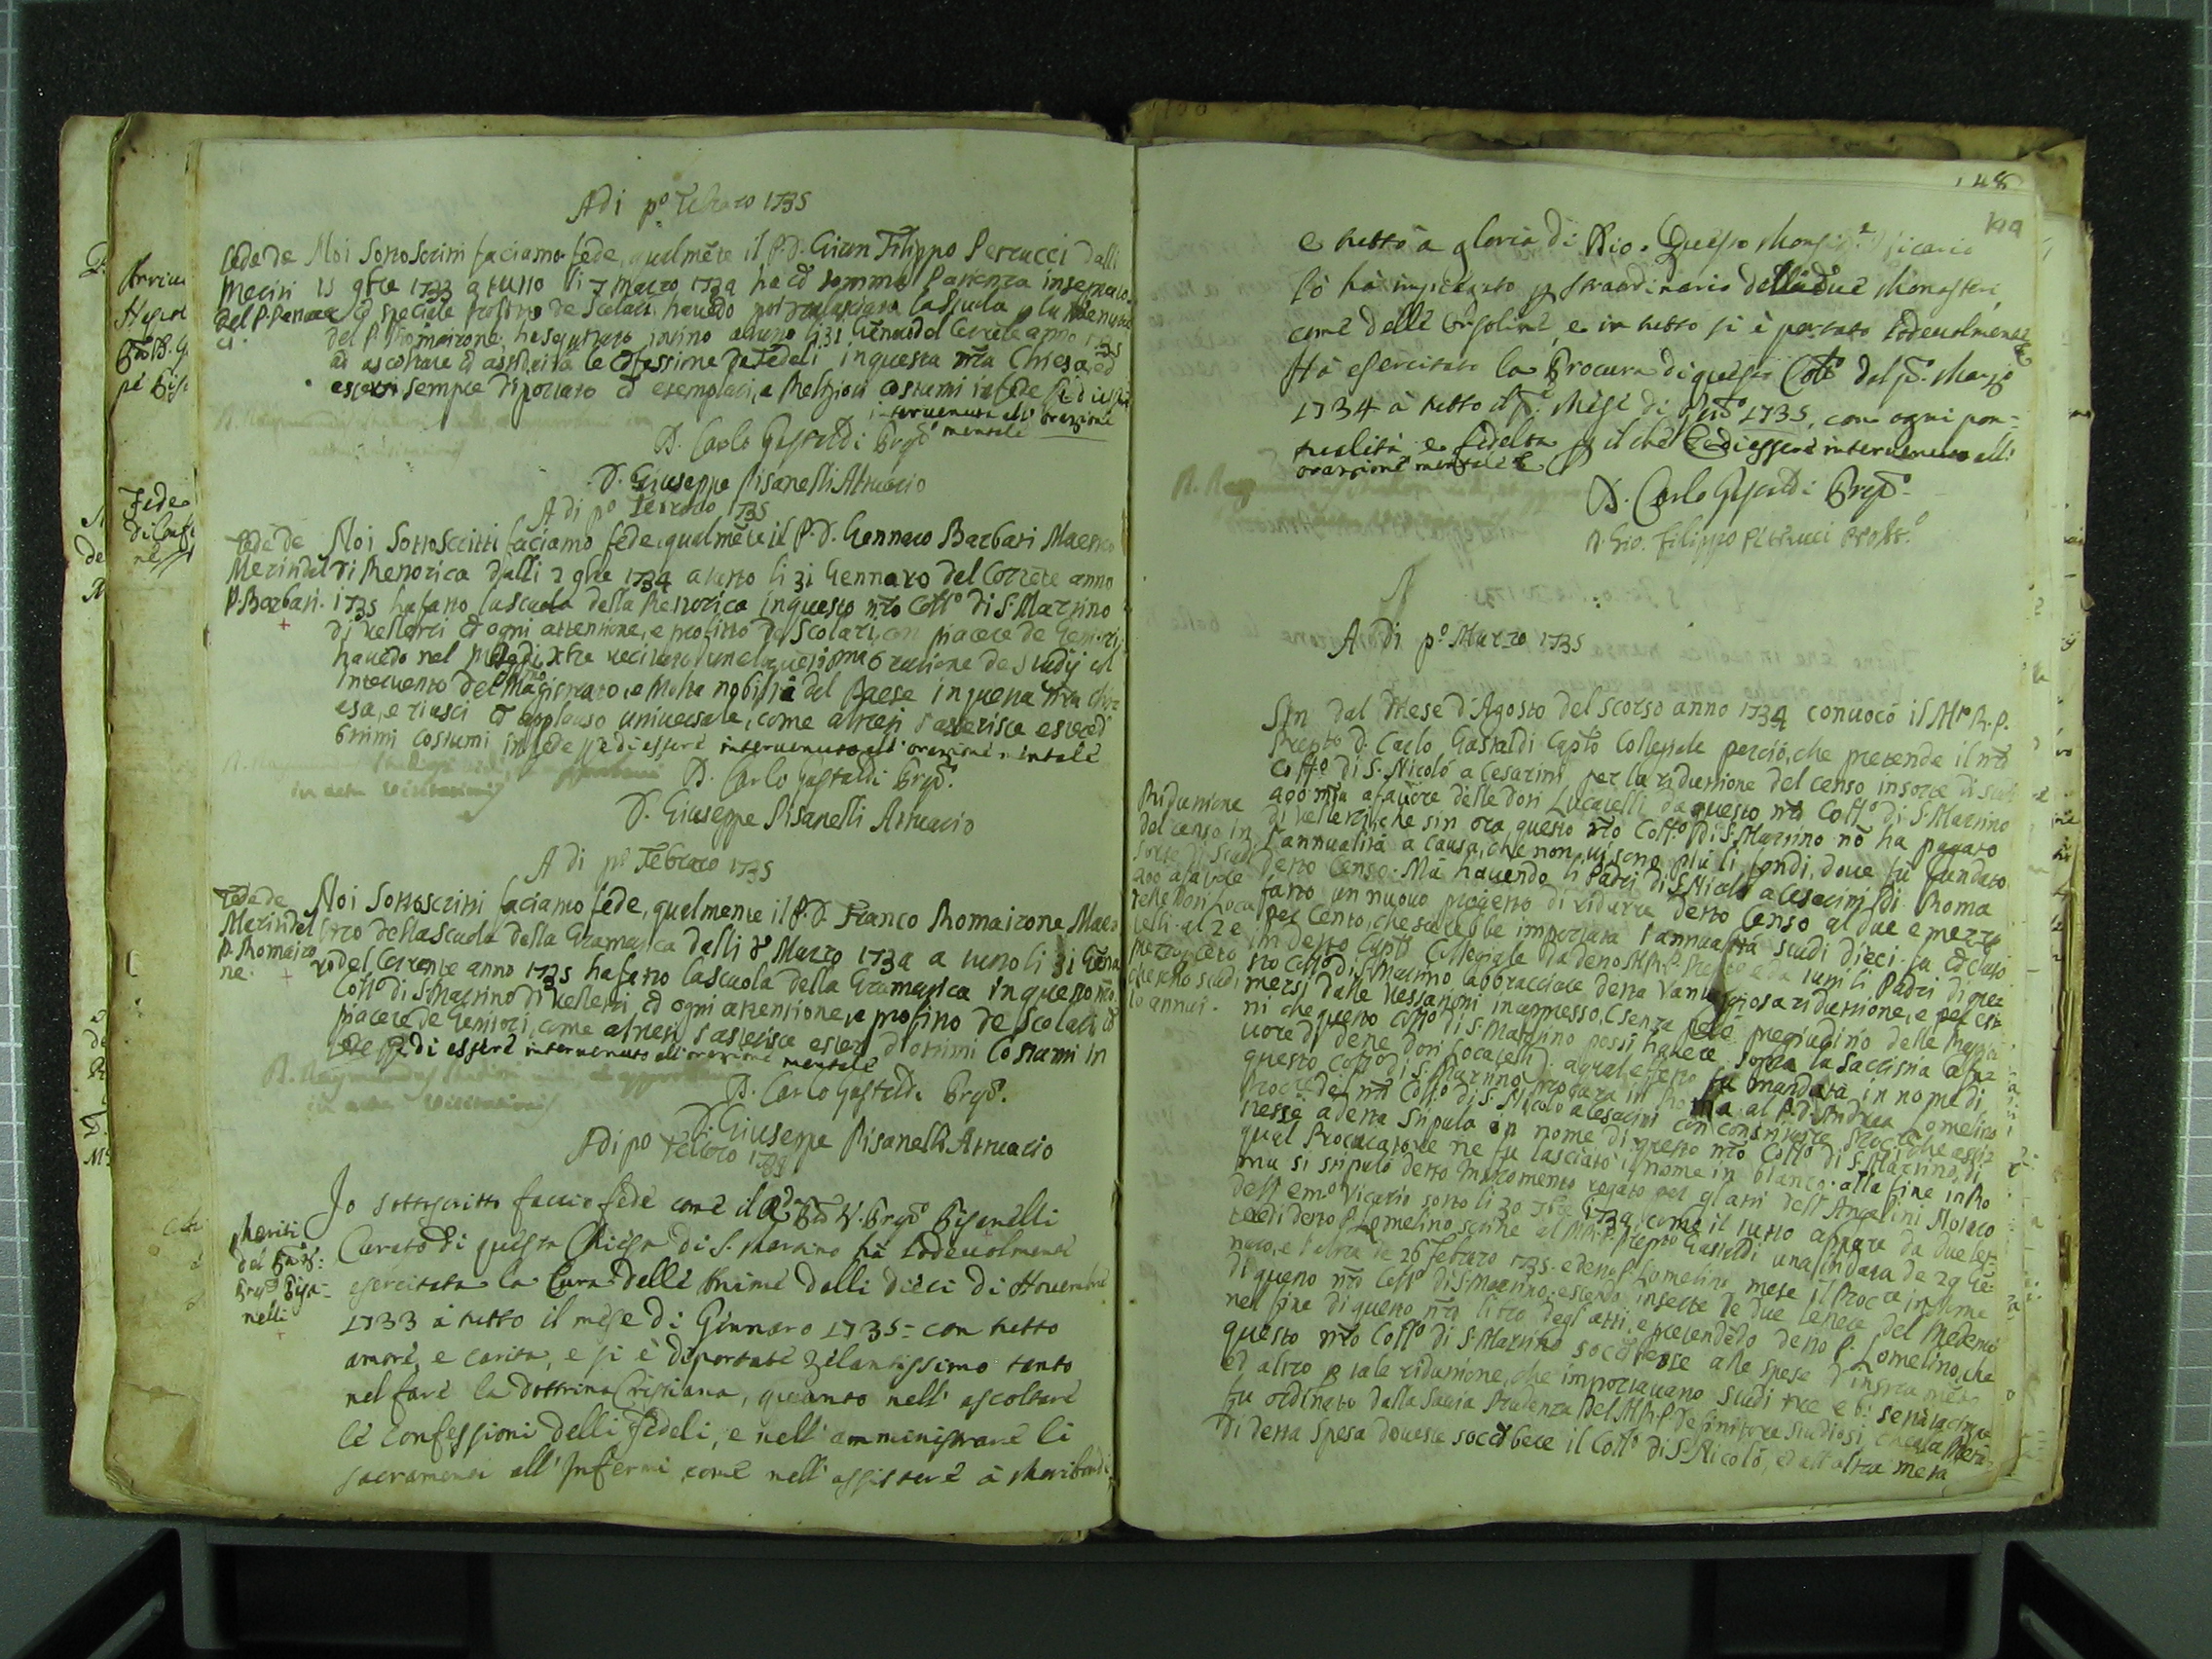 Adi po Febraro 1735
Fede de Noi Sottoscritti faciamo fede, qualmēte il P.D. Giian Filippo Petrucci dalli
Meriti 15 9bre 1733 a tutto li 7 marzo 1734 ha cō somma Pazienza insegnato
del P. Petruc cō speciale profitto de Scolari, havēdo poi tralasciata la Scuola p la venuta
ci. del P. Romairone, ha seguitato insino a tutto li 31 Gēnaro del Corrēte anno 1735
ad ascoltare cō assiduità le Cōfessioni de Fedeli in questa nr̄a Chiesa, ed
essersi sempre diportato cō esemplari, e Religiosi costumi in fede
intervenuto all' orazione
mentale
D. Carlo Gastaldi Prepto
D. Giuseppe Pisanelli Attuario
Adi po Febraro 1735
Fede de Noi Sottoscritti faciamo fede, qualmēte il P.D. Gennaro Barbari Maestro
Meriti del di Rettorica dalli 2 9bre 1734 a tutto li 31 Gennaro del Corrēte anno
P. Barbari. 1735 ha fatto la scuola della Rettorica in questo nr̄o Collo di S. Martino
di Velletri cō ogni attenzione, e profitto de Scolari, con piacere de Genitori,
havēdo nel recitato un eloquētissma Orazione de studij col
intervento del Magistrato, e Molta nobiltà del Paese in questa nr̄a Chi
esa, e riuscì cō applauso universale, come altresì s'asserisce essere d'
ottimi costumi in fede e di essere intervenuto all' orazione mentale
D. Carlo Gastaldi Prepto
in actu Visitationis
D. Giuseppe Pisanelli Attuario
A di po Febraro 1735
Fede de Noi Sottoscritti faciamo fede, qualmente il P.D. Franco Romairone Maes
Meriti del tro della scuola della Gramatica dalli 8 Marzo 1734 a tutto li 31 Gēna
P. Romairo ro del Corrente anno 1735 ha fatto la scuola della Gramatica in questo nr̄o
ne. Collo di S. Martino di Velletri cō ogni attenzione, e profitto de Scolari cō
piacere de Genitori, come altresì s'asserisce essere d'ottimi Costumi in
fede e di essere intervenuto all' orazione mentale
D. Raymundus Studiosi vidi, et approbavi
in actu Visitationis
D. Carlo Gastaldi Prepto
D. Giuseppe Pisanelli Attuario
Adi po Febraro 1735
Io sottoscritto faccio fede come il Pisanelli
Meriti Curato di questa Chiesa di S. Martino hà lodevolmente
del esercitata la Cura delle Anime dalli dieci di Novembre
Pisa- 1733 à tutto il mese di Gennaro 1735 = con tutto
nelli amore, e carità, e si è diportato zelantissimo tanto
nel fare la Dottrina Cristiana, quanto nell' ascoltare
le confessioni delli Fedeli, e nell' amministrare li
sacramenti all' Infermi, come nell' assistere à Moribondi,
148
e tutto à gloria di Dio. Questo Monsigr Vicario
lo hà impiegato p straordinario delle due Monasteri,
come delle Orsoline, e in tutto si è portato lodevolmente
Hà esercitato la Procura di questo Collo dal po Marzo
1734 à tutto il mese di 1735, con ogni pon=
tualità e fedeltà p il che di essere intervenuto all'
orazione mentale
D. Carlo Gastaldi Prepto
D. Gio. Filippo Petrucci
A di po Marzo 1735
Sin dal Mese d'Agosto del scorso anno 1734 convocò il Mto R.P.
Prepto D. Carlo Gastaldi Capto Collegiale perciò, che pretende il nr̄o
Collo di S. Nicolò a Cesarini per la riduzione del censo in sorte di scudi
Riduzione 400 a favore delle doti Lucatelli da questo nr̄o Collo di S. Martino
del censo in di Velletri, che sin ora questo nr̄o Collo di S. Martino nō ha pagato
sorte di scudi l'annualità a causa, che non vi sono più li fondi, dove fu fundato
400 a favore detto Censo. Mà havendo li Padri di S. Nicolò a Cesarini di Roma
delle Doti Loca fatto un nuovo progetto di ridurre detto Censo al due e mezzo
telli al 2 e per Cento, che sarebbe importata l'annualità scudi dieci, fu cōcluso
mezzo p cēto in detto Capto Collegiale da detto M.R.P. Prepto e da tutti li Padri di ques
che sono scudi sto Collo di S. Martino abbracciare detta vantaggiosa riduzione, e per esi
10 annui. mersi dalle vessazioni in appresso (senza però pregiudizio delle
ni che questo Collo di S. Martino possi havere sopra la Saccristia a fa
vore di dette doti Locatelli) a qual effetto fu mandata in nome di
questo Collo di S. Martino procura in Roma al P.D. Andrea Lomelino
Procre del nr̄o Collo di S. Nicolo a Cesarini con constituire Procre che assis
tesse a detta stipula in nome di questo nr̄o Collo di S. Martino, di
qual Procuratore ne fu lasciato il nome in bianco: alla fine in Ro
ma si stipulò detto Instromento rogato per gl'atti dell' Angelini Notaro
dell' Emo Vicario sotto li 30 7bre 1734 come il tutto appare da due let
tere di detto P. Lomelino scritte al M.R.P. Prepto Gastaldi una in data de 29 Gē
naro, e l'altra de 26 Febraro 1735. e detto P. Lomelino mese il Procre in nome
di questo nr̄o Collo di S. Martino, essendo inserte le due lettere del Medemo
nel fine di questo nr̄o libro degl' atti, e pretendēdo detto P. Lomelino, che
questo nr̄o Collo di S. Martino soccōbesse alle spese d'instromēto
ed altro p tale riduzione, che importavano scudi tre e b:
fu ordinato dalla Savia Prudenza del M.R.P. Definitore Studiosi, che alla Metà
di detta spesa dovesse soccōbere il Collo di S. Nicolò, ed all' altra metà